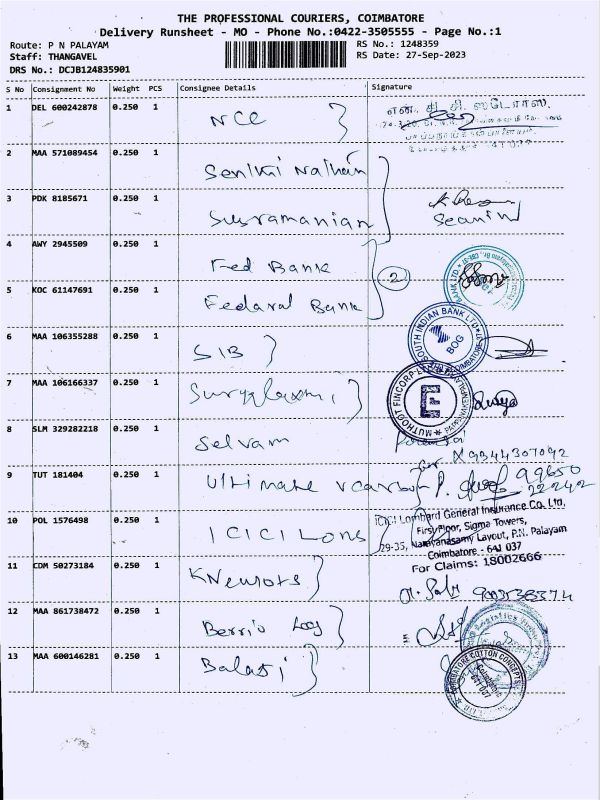 THE PROFESSIONAL COURIERS, COIMBATORE
Delivery Runsheet - MO - Phone No.:0422-3505555 - Page No.:1
Route: P N PALAYAM
RS No.: 1248359
Staff: THANGAVEL
RS Date: 27-Sep-2023
DRS No.: DCJB124835901
S No Consignment No Weight PCS Consignee Details Signature
1 DEL 600242878 0.250 1
NCC
2 MAA 571089454 0.250 1
Senthil Nathan
3 PDK 8185671 0.250 1
Subramanian
4 AWY 2945509 0.250 1
Fed Bank
2
5 KOC 61147691 0.250 1
Fedaral Bank
6 MAA 106355288 0.250 1
SIB
SOUTH INDIAN BANK LTD
BOG
COIMBATORE
7 MAA 106166337 0.250 1
Suryalaxmi
MUTHOOT FINCORP LTD
E
8 SLM 329282218 0.250 1
Selvam
9344307092
9 TUT 181404 0.250 1
Ultimate
99650
22242
10 POL 1576498 0.250 1
ICICI Lom
ICICI Lombard General Insurance Co. Ltd.
First Floor, Sigma Towers,
29-35, Narayanasamy Layout, P.N. Palayam
Coimbatore - 641 037
For Claims: 18002666
11 CDM 50273184 0.250 1
12 MAA 861738472 0.250 1
13 MAA 600146281 0.250 1
Balaji
COIMBATORE COTTON CONCEPTS